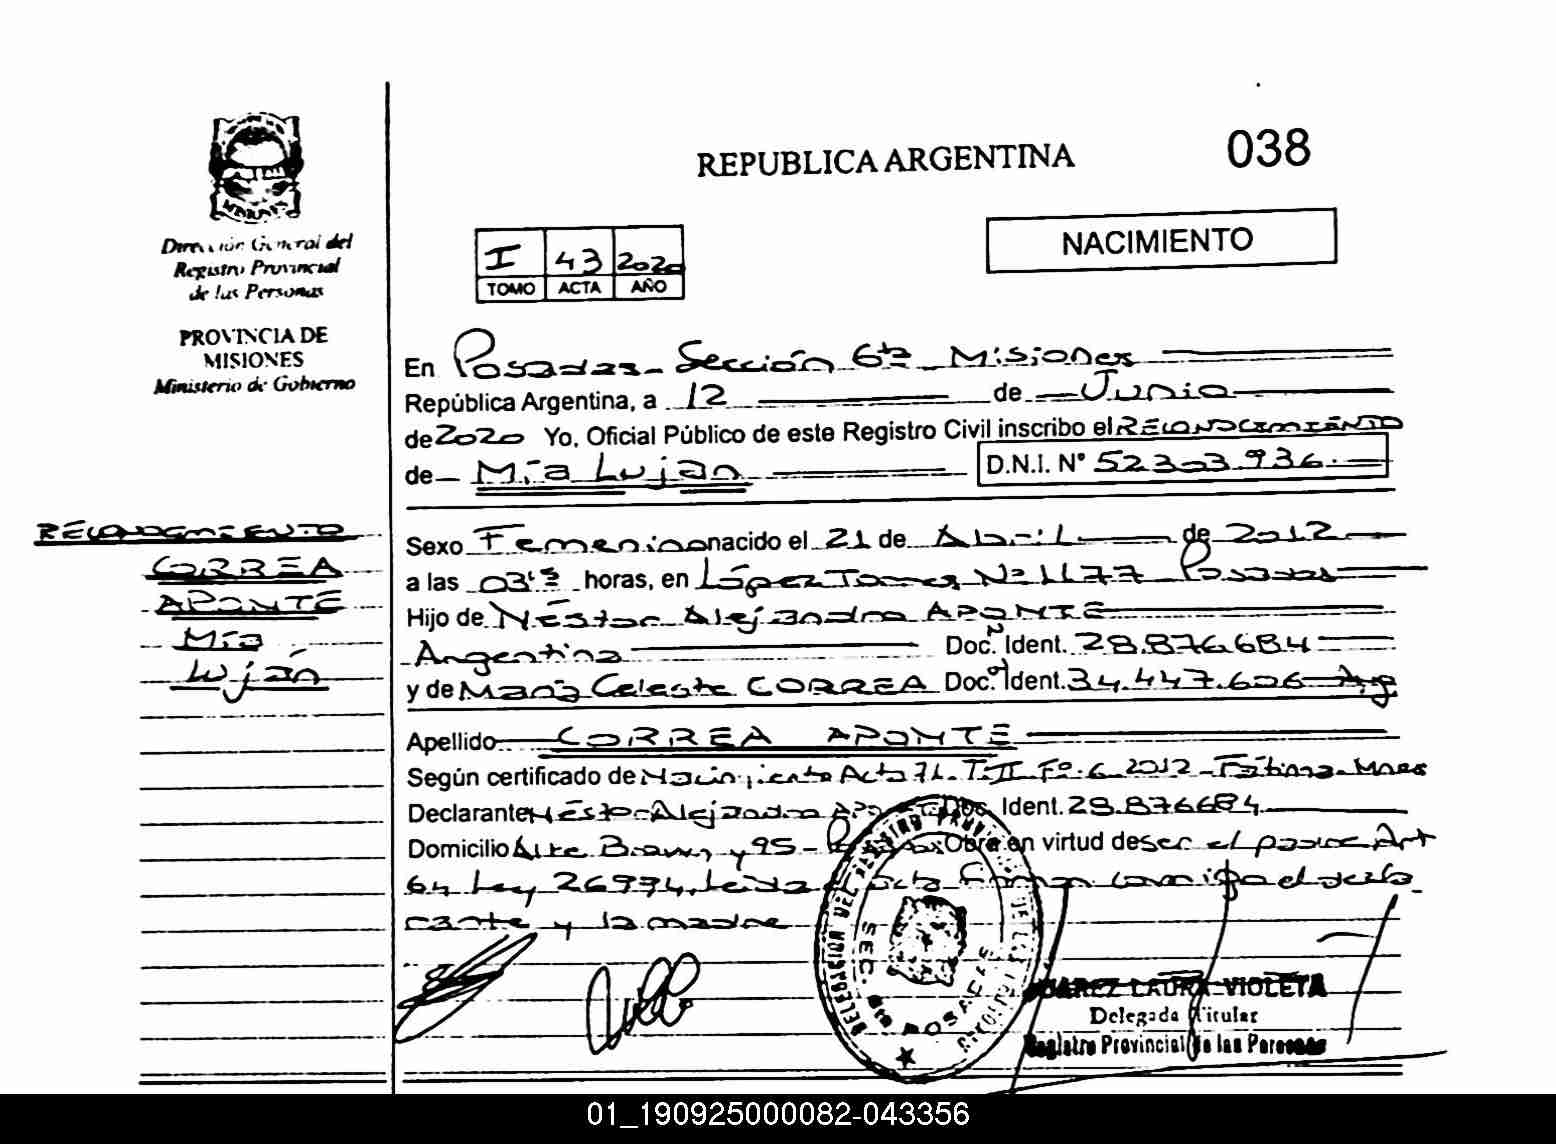 REPUBLICA ARGENTINA
038
Dirección General del
Registro Provincial
de las Personas
PROVINCIA DE
MISIONES
Ministerio de Gobierno
I 43 2020
TOMO ACTA AÑO
NACIMIENTO
En Posadas - Sección 6ta - Misiones
República Argentina, a 12 de Junio
de 2020 Yo, Oficial Público de este Registro Civil inscribo el RECONOCIMIENTO
de Mía Luján D.N.I. N° 52.303.936
RECONOCIMIENTO
CORREA
APONTE
Mía
Luján
Sexo Femenino nacido el 21 de Abril de 2012
a las 03:15 horas, en López Torres N° 1177 Posadas
Hijo de Néstor Alejandro APONTE
Argentino Doc. Ident. 28.876.684
y de María Celeste CORREA Doc. Ident. 34.447.606 Arg
Apellido CORREA APONTE
Según certificado de Nacimiento Acta 71. T.II Fº 6 2012 - Fátima - Mnes
Declarante Néstor Alejandro Doc. Ident. 28.876684
Domicilio Alte Brown y 95 - Obra en virtud de ser el padre Art
64 Ley 26994, Leída acta firman conmigo el decla
rante y la madre
DELEGACION DEL REGISTRO
SEC. 6ta POSADAS
JUAREZ LAURA VIOLETA
Delegada Titular
Registro Provincial de las Personas
01_190925000082-043356